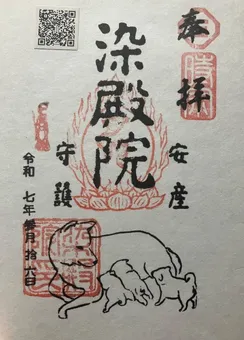 奉拝
安産
染殿院
守護
令和 七年 月拾六日